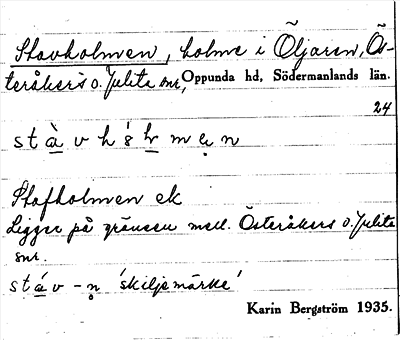 Stavholmen, holme i Öljaren, Ös-
teråkers o. Julita snr, Oppunda hd, Södermanlands län.
24
stàvhm n
Stafholmen ek
Ligger på gränsen mell. Österåkers o. Julita
snr.
stáv -n 'skiljemärke'
Karin Bergström 1935.